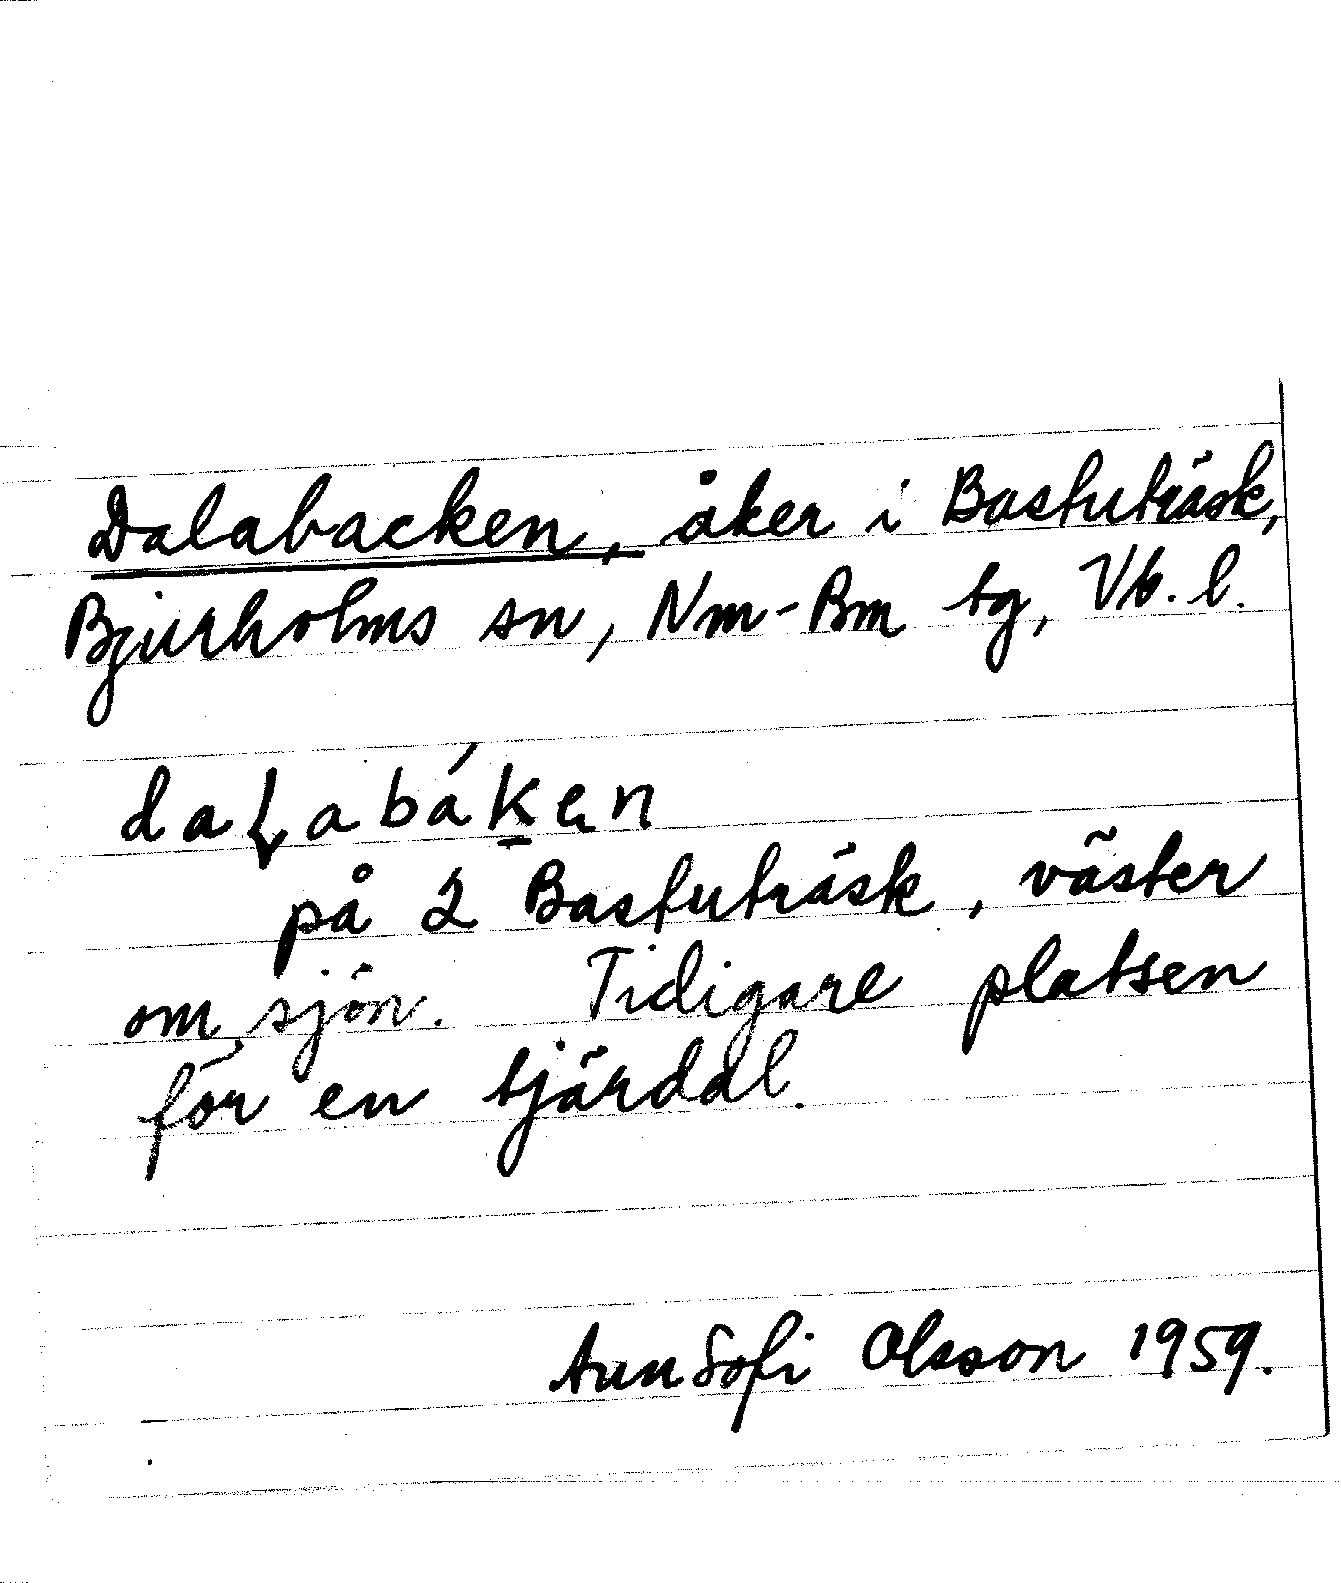 Dalabacken, åker i Bastuträsk,
Bjurholms sn, Nm-Bm tg, Vb. l.
daɭabák̲e̢n
på 2 Bastuträsk, väster
om sjön. Tidigare platsen
för en tjärdal.
AnnSofi Olsson 1959.